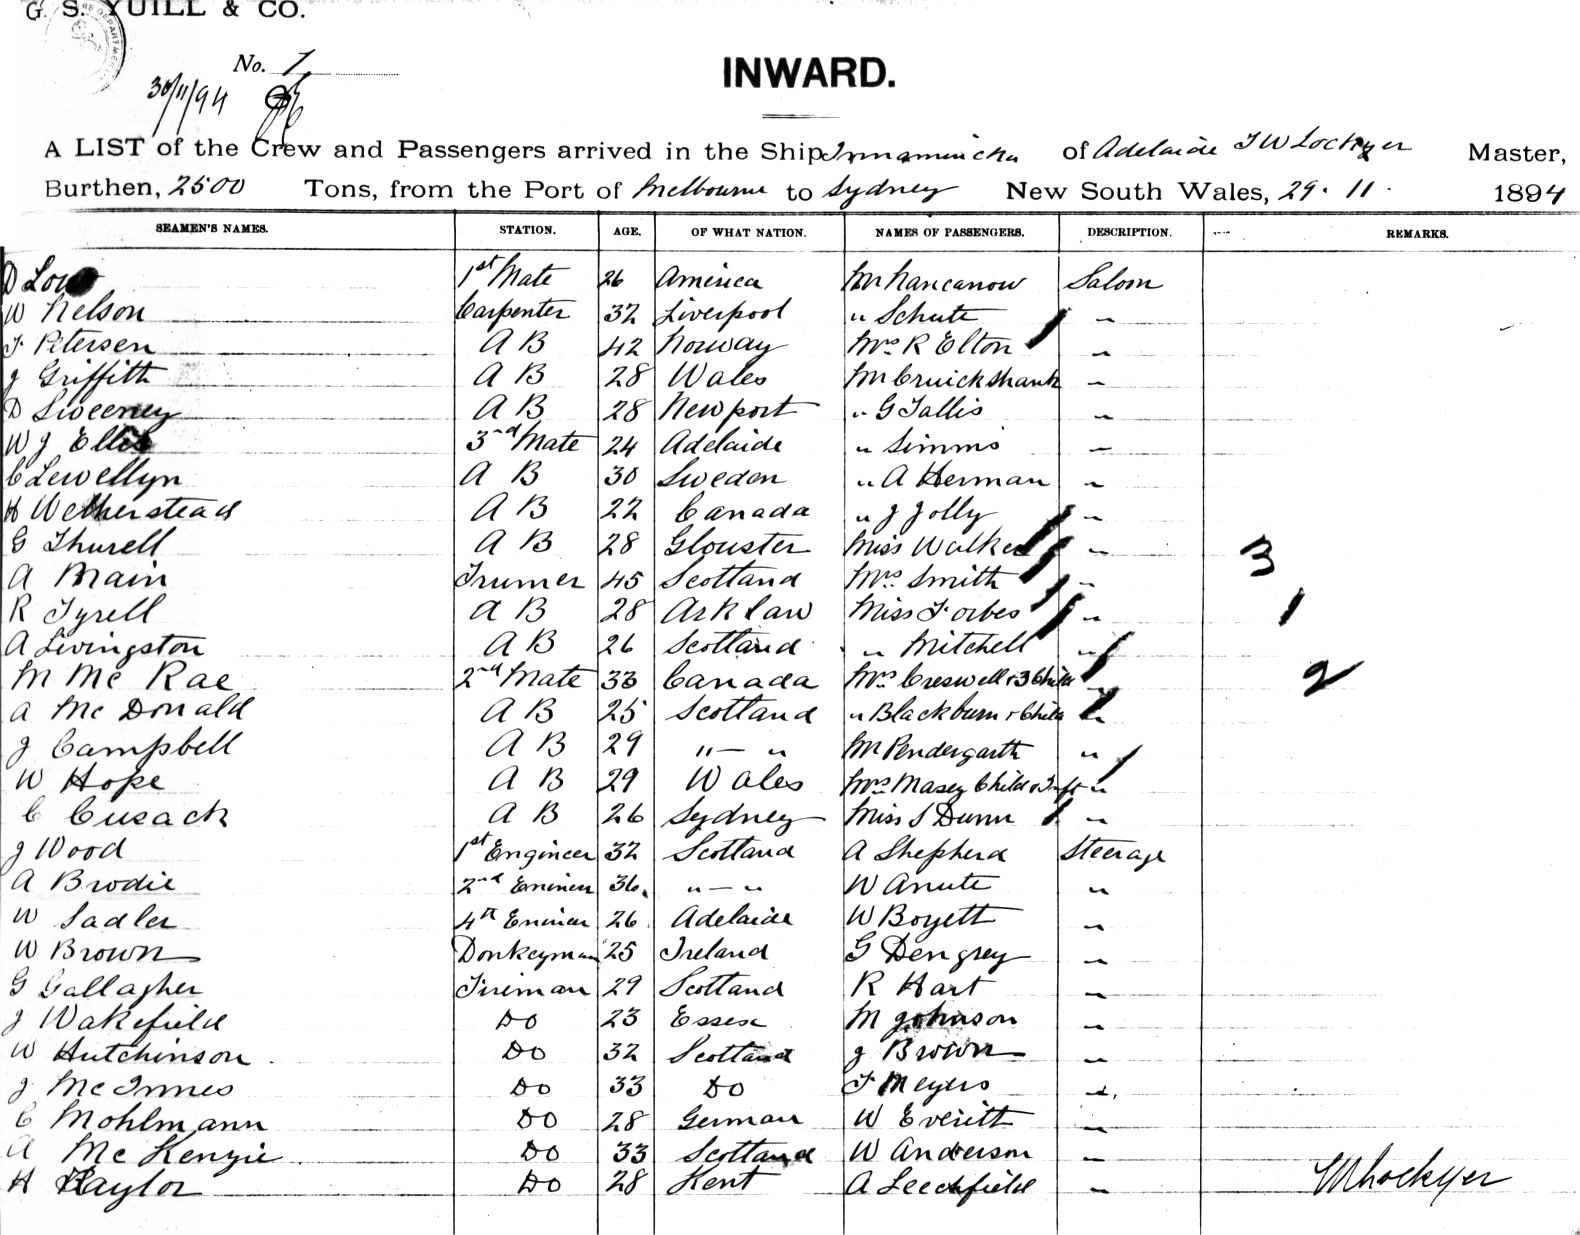 G. S. YUILL & CO.
No. 1
30/11/94
INWARD.
A LIST of the Crew and Passengers arrived in the Ship Innamincka of Adelaide T W Lockyer Master,
Burthen, 2500 Tons, from the Port of Melbourne to Sydney New South Wales, 29. 11. 1894
SEAMEN'S NAMES. STATION. AGE. OF WHAT NATION. NAMES OF PASSENGERS. DESCRIPTION. REMARKS.
D Low 1st Mate 26 America Mr Nancanow Saloon
W Nelson Carpenter 32 Liverpool " Schute "
F Petersen A B 42 Norway Mrs R Elton "
J Griffith A B 28 Wales Mr Cruickshank "
D Sweeney A B 28 Newport " G Tallis "
W J Ellis 3rd Mate 24 Adelaide " Simms "
C Lewellyn A B 30 Sweden " A Herman "
H Wetherstead A B 22 Canada " J Jolly "
G Thurell A B 28 Glouster Miss Walker " 3
A Main Trumer 45 Scotland Mrs Smith "
R Tyrell A B 28 Arklaw Miss Forbes " 1
A Livingston A B 26 Scotland " Mitchell "
M Mc Rae 2nd Mate 33 Canada Mrs Creswell & 3 Child 2
A Mc Donald A B 25 Scotland " Blackburn & Child "
J Campbell A B 29 " — " Mr Pendergarth "
W Hope A B 29 Wales Mrs Masey Child & Inft "
C Cusack A B 26 Sydney Miss S Dunn "
J Wood 1st Engineer 32 Scotland A Shepherd Steerage
A Brodie 2nd Eninier 36. " — " W Anute "
W Sadler 4th Eninier 26 Adelaide W Boyett "
W Brown Donkeyman 25 Ireland G Dengrey "
G Gallagher Fireman 29 Scotland R Hart "
J Wakefield Do 23 Essex M Johnson "
W Hutchinson Do 32 Scotland J Brown "
J McInnes Do 33 Do F Meyers "
C Mohlmann Do 28 German W Everitt "
A McKenzie Do 33 Scotland W Anderson "
H Taylor Do 28 Kent A Leechfield "
TW Lockyer